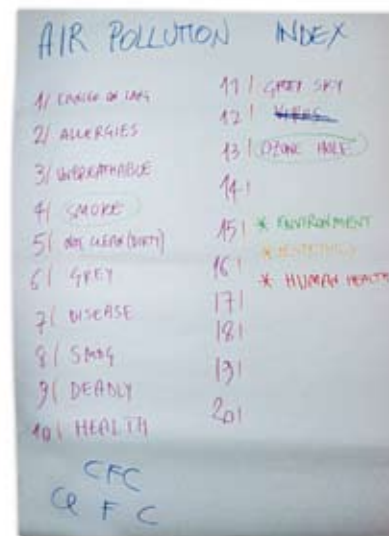 AIR POLLUTION INDEX
1/ CANCER OR LUNG
2/ ALLERGIES
3/ UNBREATHABLE
4/ SMOKE
5/ NOT CLEAN (DIRTY)
6/ GREY
7/ DISEASE
8/ SMOG
9/ DEADLY
10/ HEALTH
11/ GREY SKY
12/
13/ OZONE HOLE
14/
15/ * ENVIRONMENT
16/ *
* HUMAN HEALTH
17/
18/
19/
20/
CFC
CL F C